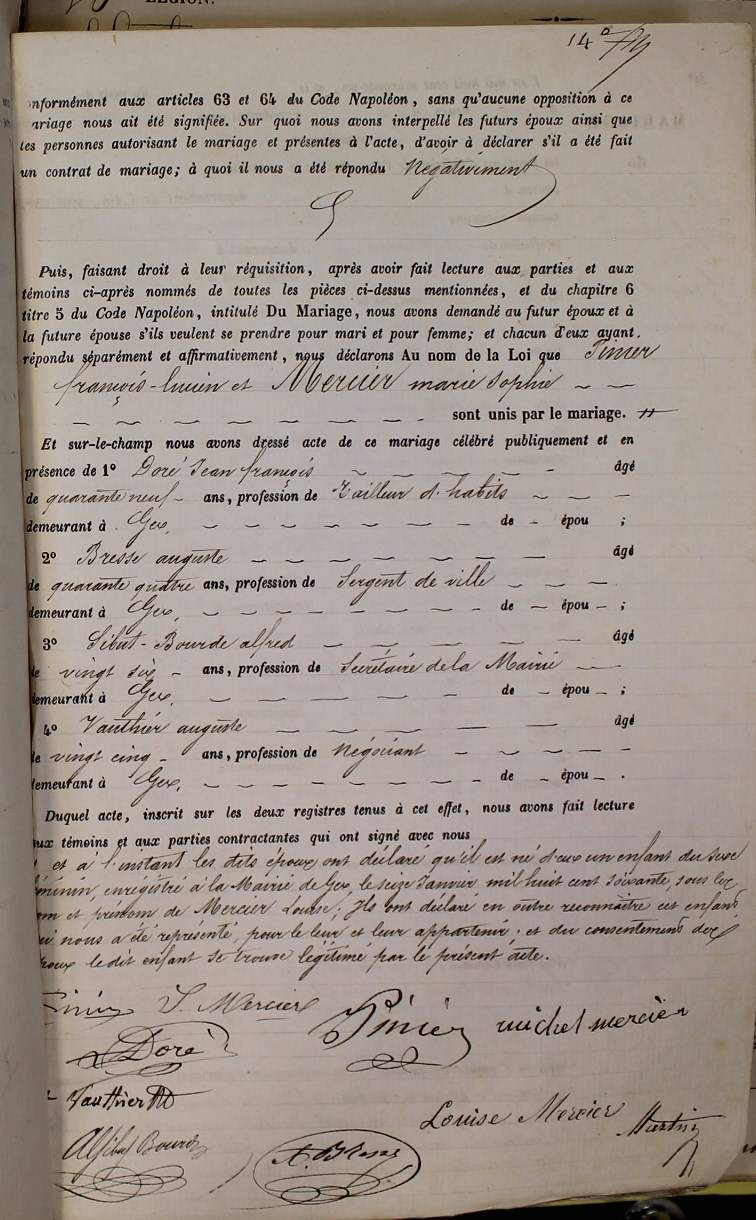 LÉGION.
14
nformément aux articles 63 et 64 du Code Napoléon, sans qu'aucune opposition à ce
ariage nous ait été signifiée. Sur quoi nous avons interpellé les futurs époux ainsi que
les personnes autorisant le mariage et présentes à l'acte, d'avoir à déclarer s'il a été fait
un contrat de mariage; à quoi il nous a été répondu Négativement
Puis, faisant droit à leur réquisition, après avoir fait lecture aux parties et aux
témoins ci-après nommés de toutes les pièces ci-dessus mentionnées, et du chapitre 6
titre 5 du Code Napoléon, intitulé Du Mariage, nous avons demandé au futur époux et à
la future épouse s'ils veulent se prendre pour mari et pour femme; et chacun d'eux ayant
répondu séparément et affirmativement, nous déclarons Au nom de la Loi que Pinier
françois-lucien et Mercier marie Sophie
sont unis par le mariage.
Et sur-le-champ nous avons dressé acte de ce mariage célébré publiquement et en
présence de 1° Doré Jean françois âgé
de quarante neuf ans, profession de Tailleur d'habits
demeurant à Gex, de - épou ;
2° Bresse auguste âgé
de quarante quatre ans, profession de Sergent de ville
demeurant à Gex, de - épou - ;
3° Sibut-Bourde alfred âgé
de vingt six - ans, profession de Secrétaire de la Mairie
demeurant à Gex, de - épou - ;
4° Vauthier auguste âgé
de vingt cinq - ans, profession de Négociant
demeurant à Gex, de - épou - .
Duquel acte, inscrit sur les deux registres tenus à cet effet, nous avons fait lecture
aux témoins et aux parties contractantes qui ont signé avec nous
et à l'instant les dits époux ont déclaré qu'il est né d'eux un enfant du sexe
féminin, enregistré à la Mairie de Gex, le seize Janvier mil huit cent soixante, sous les
nom et prénom de Mercier Louise; Ils ont déclaré en outre reconnaître cet enfant,
qui nous a été représenté, pour le leur et leur appartenir, et du consentement des
époux le dit enfant se trouve légitimé par le présent acte.
Pinier S. Mercier Pinier michel mercier
Doré
Vauthier
Louise Mercier Martin
Alf Sibut Bourde A. Bresse